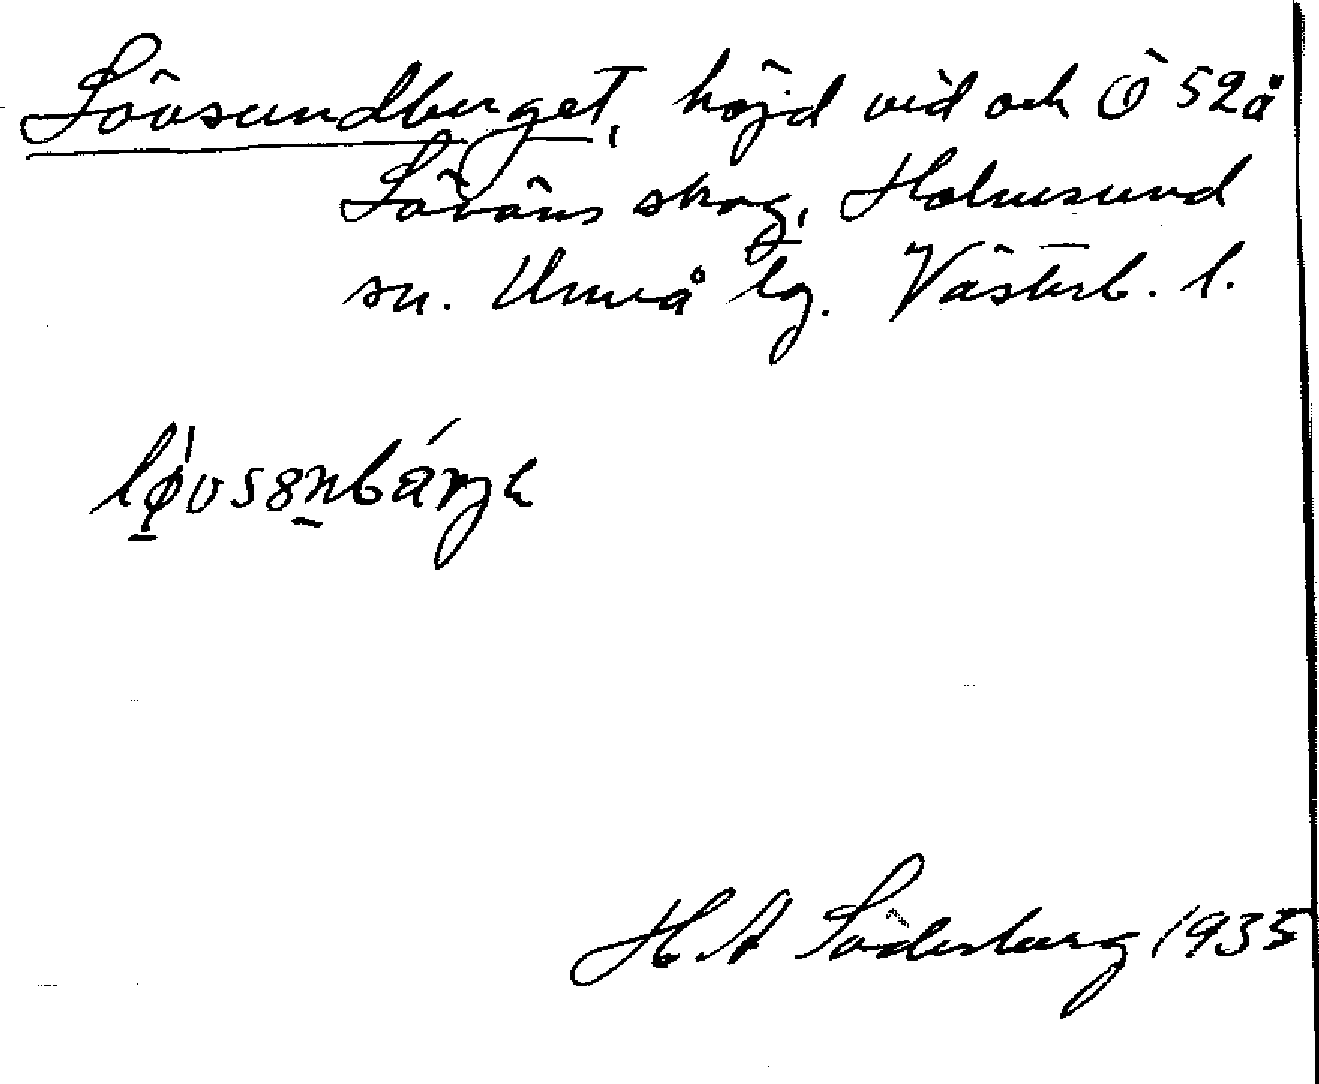 Lövsundberget, höjd vid och Ö 52 å
Lövöns skog, Holmsund
sn. Umeå lg. Västerb. l.
lø̱̀vs 8ṉbárgɛ
H A Söderberg 1935